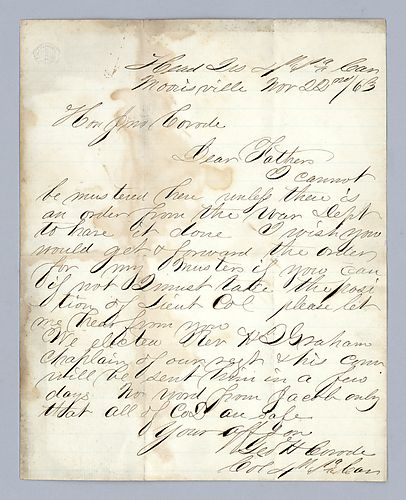 Head Qrs 4th Pa Cav
Morrisville Nov 22nd/63
Hon Jno Covode
Dear Father
I cannot
be mustered here unless there is
an order from the War Dept
to have it done I wish you
would get & forward the order
for my muster if you can
& if not I must take the posi
ation of Lieut Col please let
me hear from you
We elected Rev H Q Graham
Chaplain of our regt & his com
will be sent him in a few
days Nor word from Jacob only
that all of Co are safe
Your aff Son
Geo H Covode
Col 4th Pa Cav